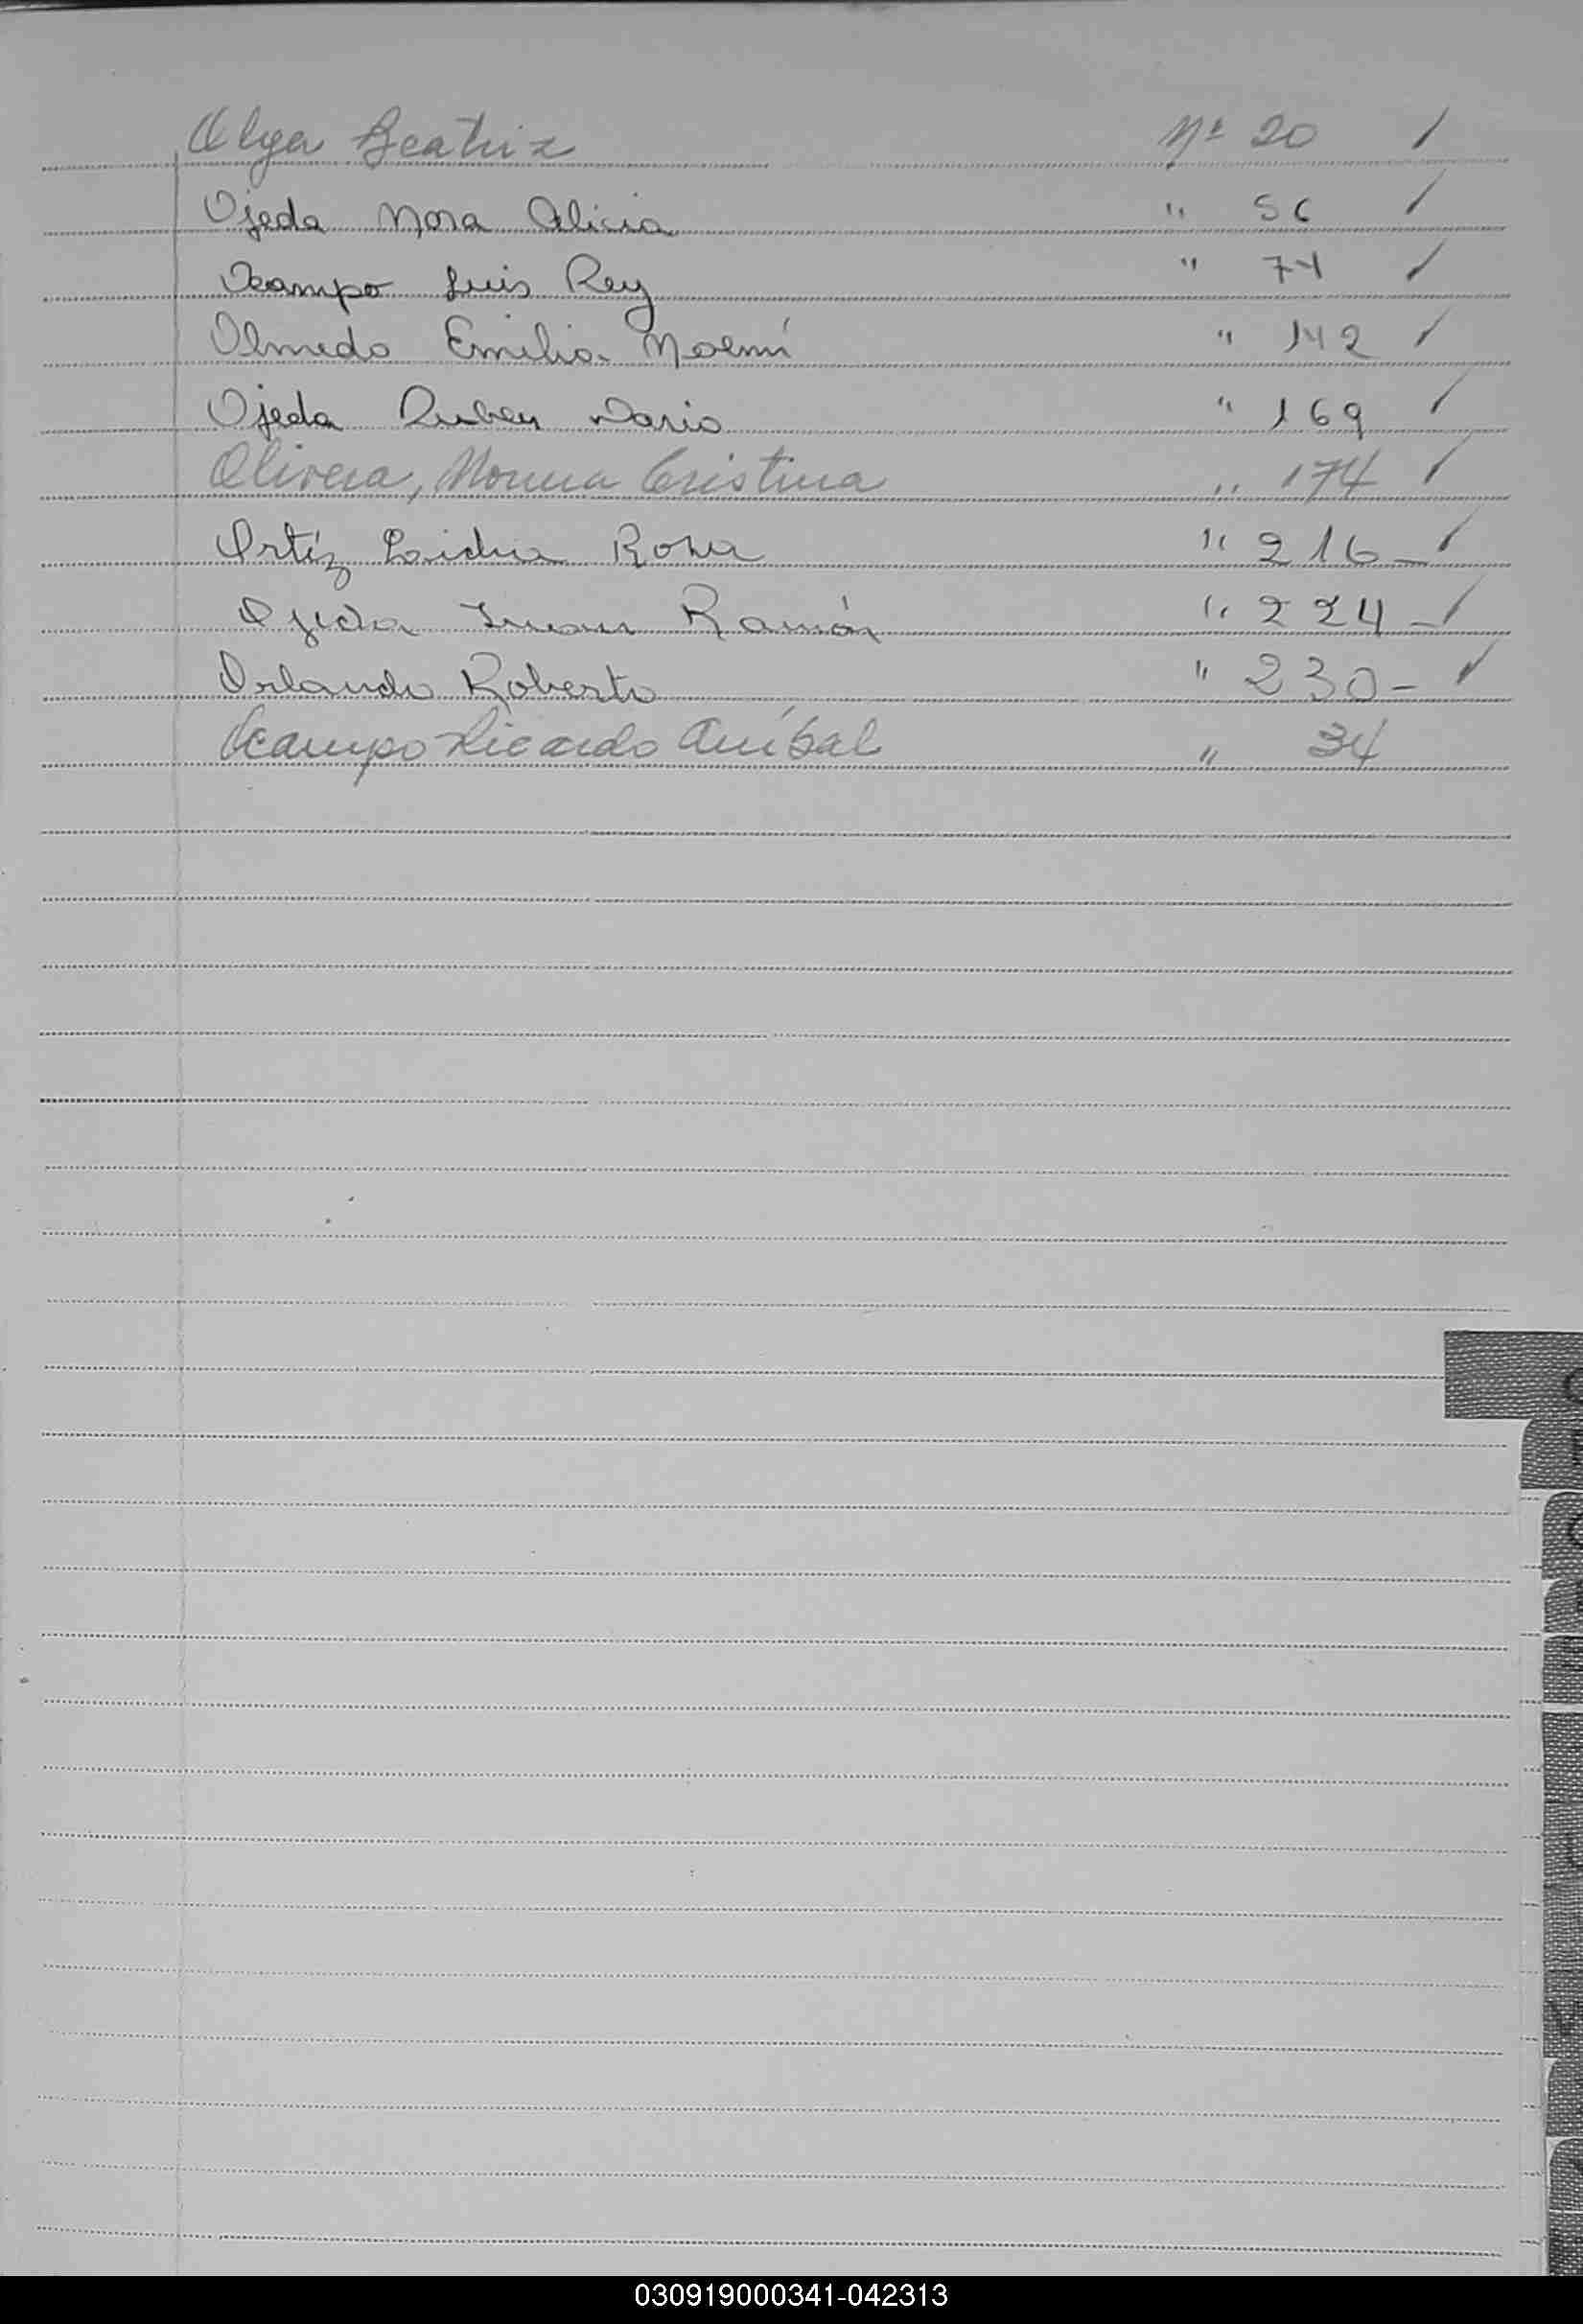 Olga Beatriz Nº 20 ✓
Ojeda Nora Alicia " 56 ✓
Ocampo Luis Rey " 74 ✓
Olmedo Emilia Noemí " 142 ✓
Ojeda Ruben Dario " 169 ✓
Olivera, Norma Cristina " 174 ✓
Ortíz Rosa " 216 - ✓
Ojeda Juan Ramón " 224 - ✓
Orlando Roberto " 230 - ✓
Ocampo Ricardo Aníbal " 34
030919000341-042313